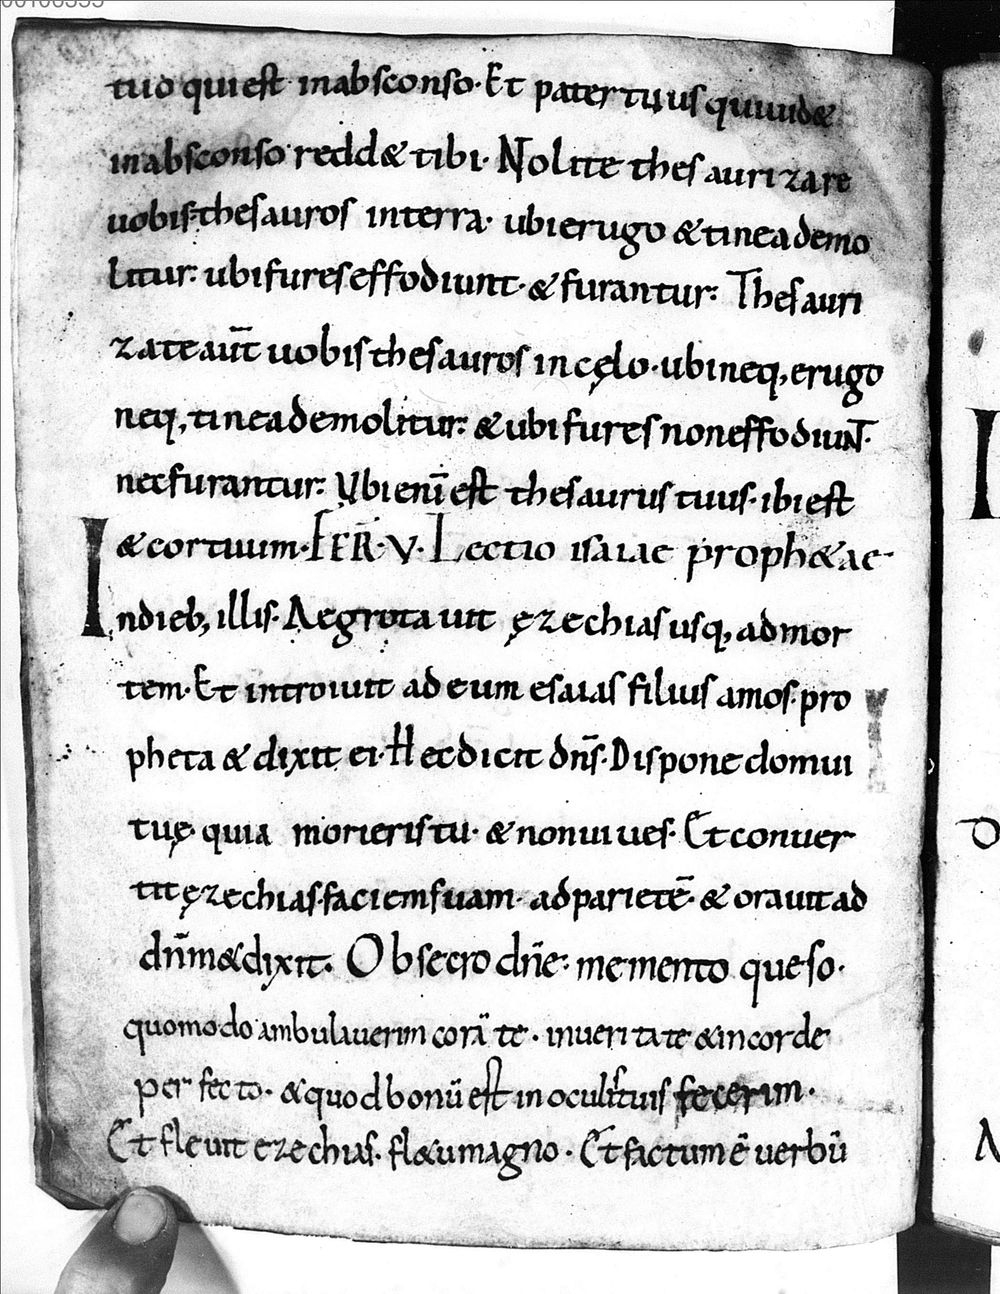 tuo qui est inabsconso· Et pater tuus qui uid&
inabsconso redd& tibi· Nolite thesaurizare
uobis thesauros interra· ubi erugo & tinea demo
litur· ubi fures effodiunt· & furantur· Thesauri
zate aūt uobis thesauros in cęlo· ubi neq, erugo
neq, tinea demolitur· & ubi fures non effodiunt·
nec furantur· Ubi eni̅ est thesaurus tuus· ibi est
& cor tuum· FER̄·V· Lectio isaiae proph&ae·
Indieb, illis· Aegrotauit ęzechias usq, ad mor
tem· Et introiuit ad eum esaias filius amos· pro
pheta & dixit ei· Hec dicit dn̄s· Dispone domui
tuę quia morieris tu· & non uiues· Et conuer
tit ęzechias faciem suam· ad pariete̅· & orauit ad
dn̄m & dixit· Obsecro dn̄e· memento queso·
quomodo ambulauerim corā te· in ueritate & in corde
perfecto· & quod bonū est in oculis tuis fecerim·
Et fleuit ezechias· fl&u magno· Et factum ē uerbū